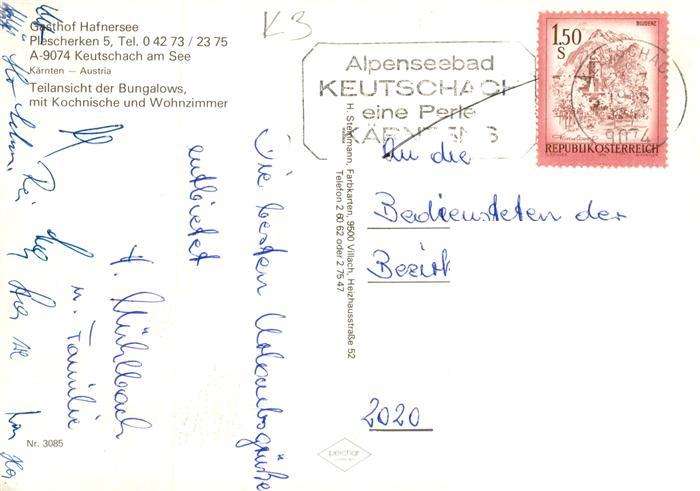 K3
Gasthof Hafnersee
Plescherken 5, Tel. 0 42 73 / 23 75
A-9074 Keutschach am See
Kärnten – Austria
Teilansicht der Bungalows,
mit Kochnische und Wohnzimmer
Alpenseebad
KEUTSCHACH
eine Perle
KÄRNTENS
BLUDENZ
1.50
S
REPUBLIK ÖSTERREICH
9074
H. Steinmann, Farbkarten, 9500 Villach, Heizhausstraße 52
Telefon 2 60 62 oder 2 75 47
Die besten Urlaubsgrüße
entbietet
H. Mühlbach
u. Familie
An die
Bediensteten der
Bezirk
2020
Nr. 3085